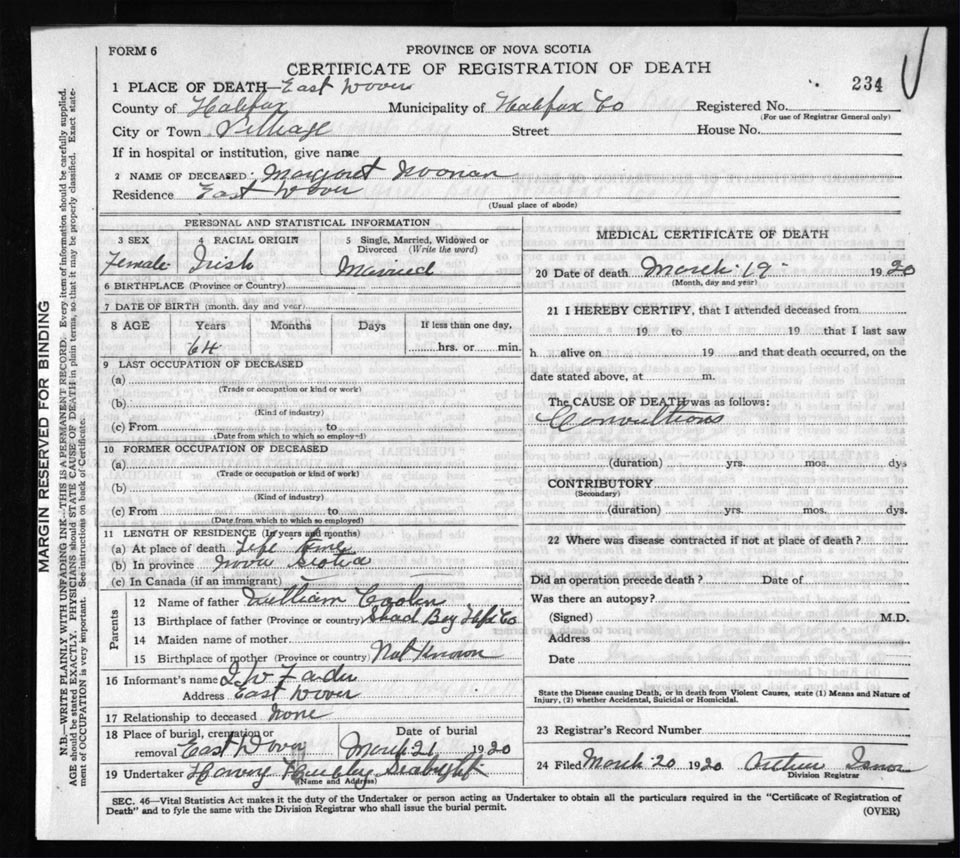 FORM 6
PROVINCE OF NOVA SCOTIA
CERTIFICATE OF REGISTRATION OF DEATH
234
1 PLACE OF DEATH—East Dover
County of Halifax Municipality of Halifax Co Registered No.
(For use of Registrar General only)
City or Town Village Street House No.
If in hospital or institution, give name
2 NAME OF DECEASED Margaret Noonan
Residence East Dover
(Usual place of abode)
PERSONAL AND STATISTICAL INFORMATION
3 SEX 4 RACIAL ORIGIN 5 Single, Married, Widowed or Divorced (Write the word)
Female Irish Married
6 BIRTHPLACE (Province or Country)
7 DATE OF BIRTH (month, day and year)
8 AGE Years Months Days If less than one day,
64 hrs. or min.
9 LAST OCCUPATION OF DECEASED
(a)
(Trade or occupation or kind or work)
(b)
(Kind of industry)
(c) From to
(Date from which to which so employed)
10 FORMER OCCUPATION OF DECEASED
(a)
(Trade or occupation or kind of work)
(b)
(Kind of industry)
(c) From to
(Date from which to which so employed)
11 LENGTH OF RESIDENCE (In years and months)
(a) At place of death Life time
(b) In province Nova Scotia
(c) In Canada (if an immigrant)
Parents
12 Name of father William
13 Birthplace of father (Province or country) Shad Bay Hfx Co
14 Maiden name of mother
15 Birthplace of mother (Province or country) Not Known
16 Informant's name J W
Address East Dover
17 Relationship to deceased None
18 Place of burial, cremation or removal East Dover
Date of burial
March 21 1920
19 Undertaker Harvey Seabright
(Name and Address)
MEDICAL CERTIFICATE OF DEATH
20 Date of death March 19 1920
(Month, day and year)
21 I HEREBY CERTIFY, that I attended deceased from
19 to 19 that I last saw
h alive on 19 and that death occurred, on the
date stated above, at m.
The CAUSE OF DEATH was as follows:
Convultions
(duration) yrs. mos. dys
CONTRIBUTORY
(Secondary)
(duration) yrs. mos. dys.
22 Where was disease contracted if not at place of death?
Did an operation precede death? Date of
Was there an autopsy?
(Signed) M.D.
Address
Date
State the Disease causing Death, or in death from Violent Causes, state (1) Means and Nature of
Injury, (2) whether Accidental, Suicidal or Homicidal.
23 Registrar's Record Number
24 Filed March 20 1920 Arthur
Division Registrar
SEC. 46—Vital Statistics Act makes it the duty of the Undertaker or person acting as Undertaker to obtain all the particulars required in the "Certificate of Registration of
Death" and to fyle the same with the Division Registrar who shall issue the burial permit.
(OVER)
MARGIN RESERVED FOR BINDING
N.B.—WRITE PLAINLY WITH UNFADING INK—THIS IS A PERMANENT RECORD. Every item of information should be carefully supplied.
AGE should be stated EXACTLY. PHYSICIANS should STATE CAUSE OF DEATH in plain terms, so that it may be properly classified. Exact state-
ment of OCCUPATION is very important. See instructions on back of Certificate.